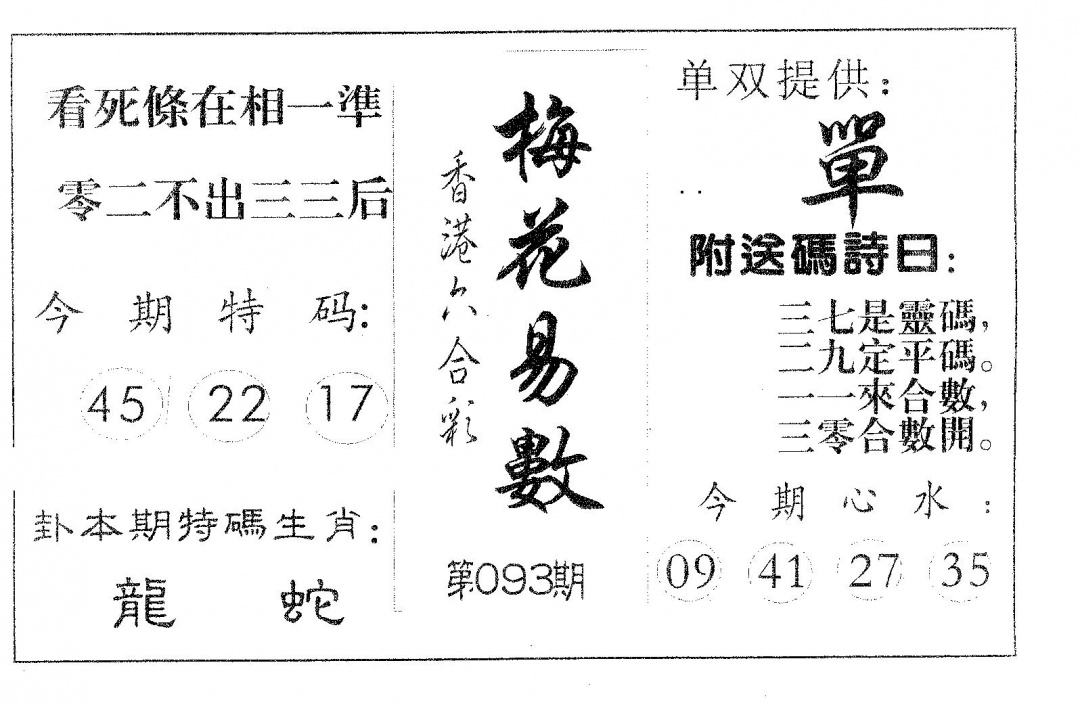 看死條在相一準
零二不出三三后
今期特码:
45 22 17
卦本期特碼生肖:
龍 蛇
香港六合彩
梅花易數
第093期
单双提供:
單
附送碼詩曰:
三七是靈碼,
二九定平碼。
一一來合數,
三零合數開。
今期心水:
09 41 27 35